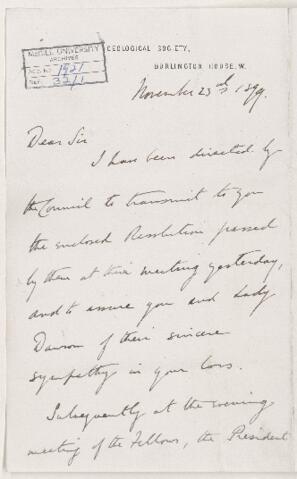 McGILL UNIVERSITY
ARCHIVES
ACC. NO. 1921
REF. 32/1
GEOLOGICAL SOCIETY,
BURLINGTON HOUSE, W.
November 23rd 1899.
Dear Sir
I have been directed by
the Council to transmit to you
the enclosed Resolution passed
by them at their meeting yesterday,
and to assure you and Lady
Dawson of their sincere
sympathy in your loss.
Subsequently at the evening
meeting of the Fellows, the President